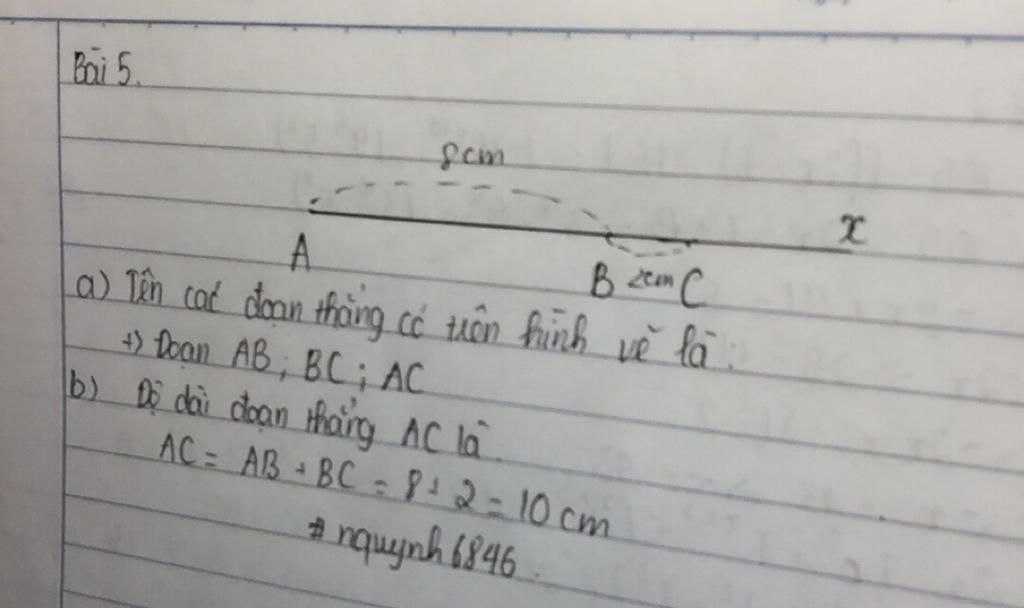 Bài 5.
8cm
x
A
B 2cm C
a) Tên các đoạn thẳng có trên hình vẽ là :
+) Đoạn AB ; BC ; AC
b) Độ dài đoạn thẳng AC là
AC = AB + BC = 8 + 2 = 10 cm
# nquynh6846.